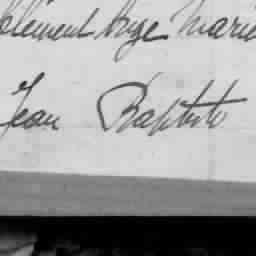 Clément Ange Marie
Jean Baptiste